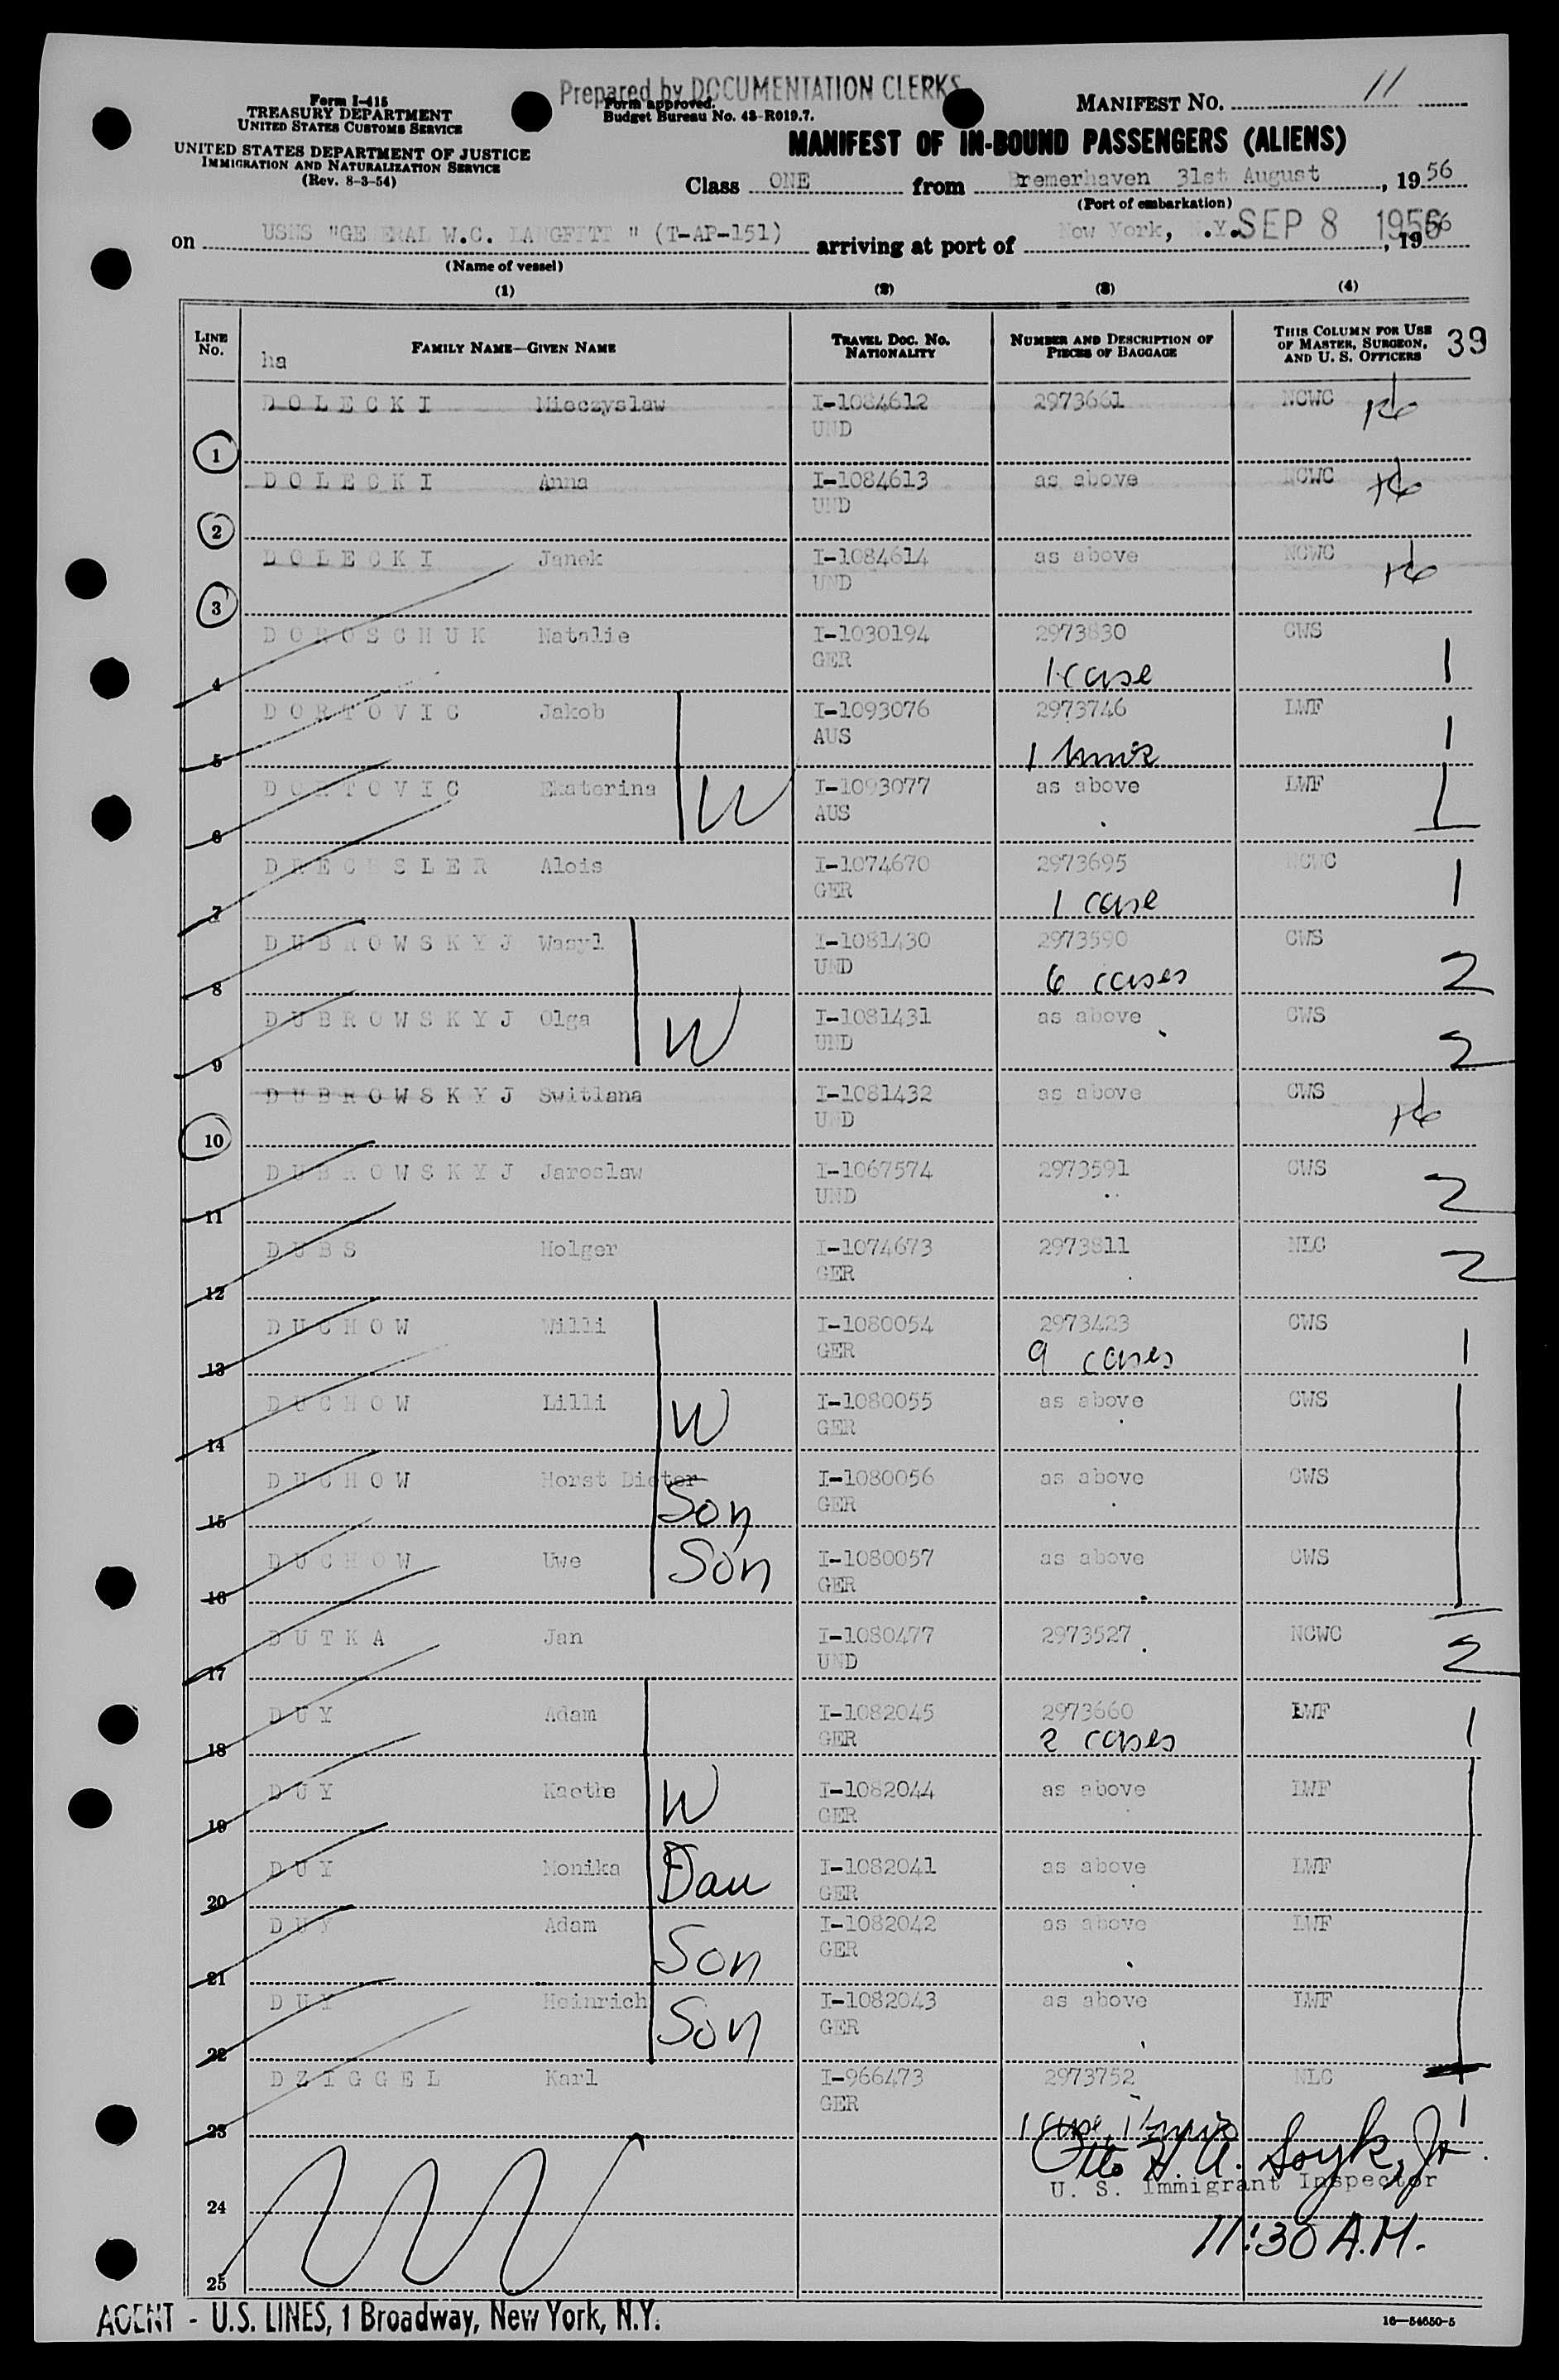 Prepared by DOCUMENTATION CLERKS
Form I-415
TREASURY DEPARTMENT
UNITED STATES CUSTOMS SERVICE
UNITED STATES DEPARTMENT OF JUSTICE
IMMIGRATION AND NATURALIZATION SERVICE
(Rev. 8-3-54)
Form approved.
Budget Bureau No. 43-R019.7.
MANIFEST NO. 11
MANIFEST OF IN-BOUND PASSENGERS (ALIENS)
Class ONE from Bremerhaven 31st August, 1956
(Port of embarkation)
on USNS "GENERAL W.C. LANGFITT " (T-AP-151) arriving at port of New York, N.Y. SEP 8 1956, 1956
(Name of vessel)
(1) (2) (3) (4)
LINE NO. FAMILY NAME—GIVEN NAME TRAVEL DOC. NO. NATIONALITY NUMBER AND DESCRIPTION OF PIECES OF BAGGAGE THIS COLUMN FOR USE OF MASTER, SURGEON, AND U. S. OFFICERS 39
ha
DOLECKI Mieczyslaw I-1084612 2973661 NCWC
1 UND
DOLECKI Anna I-1084613 as above NCWC
2 UND
DOLECKI Janek I-1084614 as above NCWC
3 UND
DOROSCHUK Natalie I-1030194 2973830 CWS
4 GER 1 case 1
DORTOVIC Jakob I-1093076 2973746 LWF
5 AUS 1 1
DORTOVIC Ekaterina I-1093077 as above LWF
6 W AUS
DRECHSLER Alois I-1074670 2973695 NCWC
7 GER 1 case 1
DUBROWSKYJ Wasyl I-1081430 2973590 CWS
8 UND 6 cases 2
DUBROWSKYJ Olga I-1081431 as above CWS
9 W UND 2
DUBROWSKYJ Switlana I-1081432 as above CWS
10 UND
DUBROWSKYJ Jaroslaw I-1067574 2973591 CWS
11 UND 2
DUBS Holger I-1074673 2973811 NLC
12 GER 2
DUCHOW Willi I-1080054 2973423 CWS
13 GER 9 cases 1
DUCHOW Lilli I-1080055 as above CWS
14 W GER
DUCHOW Horst Dieter I-1080056 as above CWS
15 Son GER
DUCHOW Uwe I-1080057 as above CWS
16 Son GER
DUTKA Jan I-1080477 2973527 NCWC
17 UND 2
DUY Adam I-1082045 2973660 LWF
18 GER 2 cases 1
DUY Kaethe I-1082044 as above LWF
19 W GER
DUY Monika I-1082041 as above LWF
20 Dau GER
DUY Adam I-1082042 as above LWF
21 Son GER
DUY Heinrich I-1082043 as above LWF
22 Son GER
DZIGGEL Karl I-966473 2973752 NLC
23 GER 1 case, 1 1
Otto H. A. Soyk, Jr.
U. S. Immigrant Inspector
24
11:30 A.M.
25
AGENT - U.S. LINES, 1 Broadway, New York, N.Y.
16—54650-5